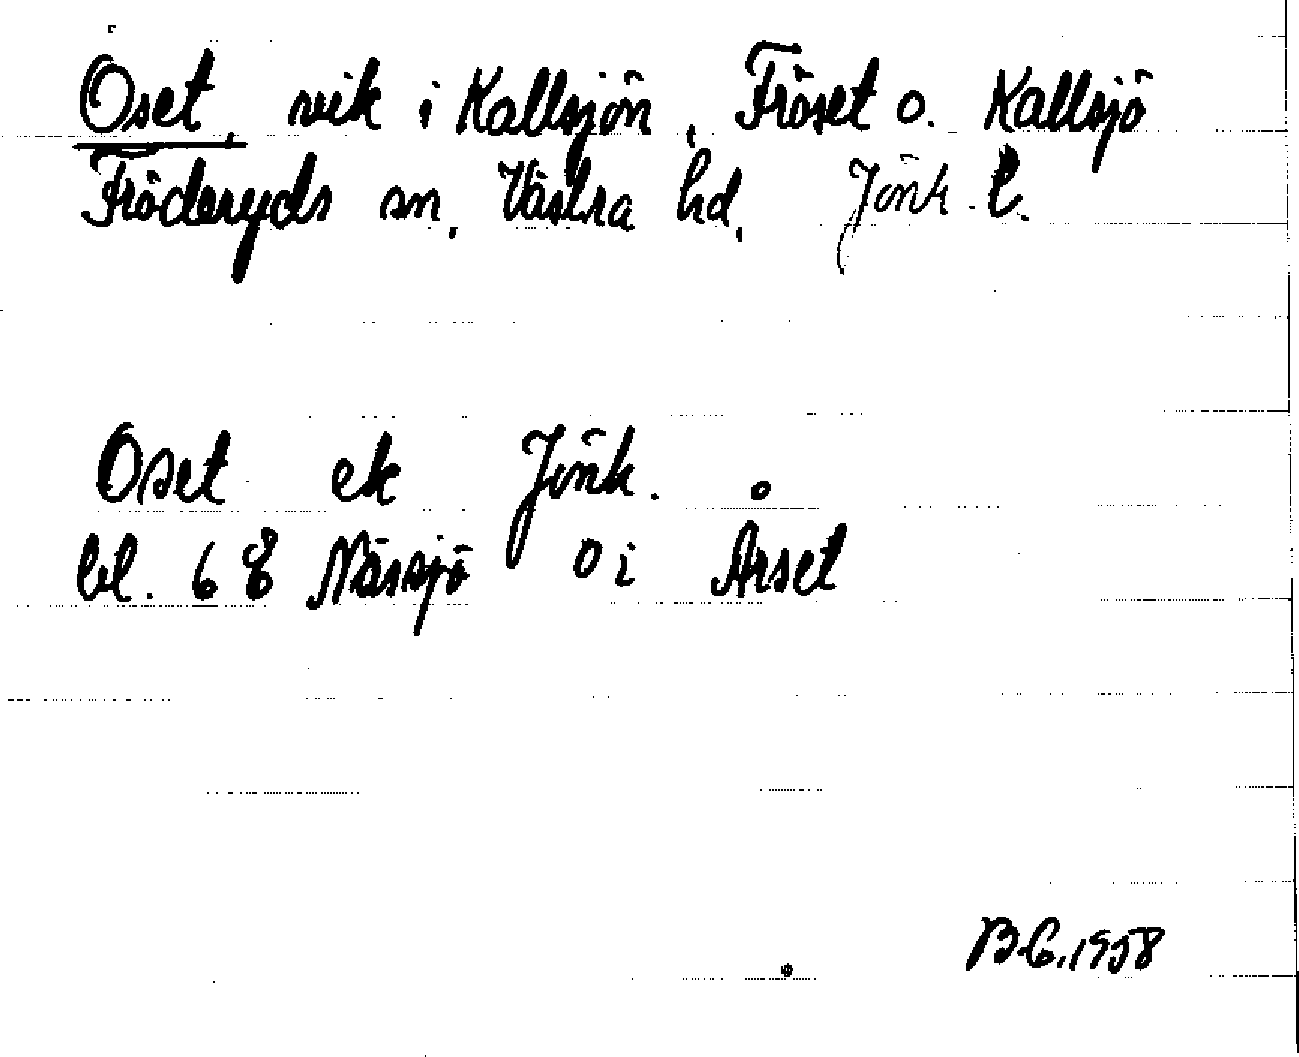 Oset, vik i Kallsjön, Fröset o. Kallsjö
Fröderyds sn, Västra hd, Jönk. l.
Oset ek Jönk.
bl. 68 Nässjö O i Årset
B-G. 1958